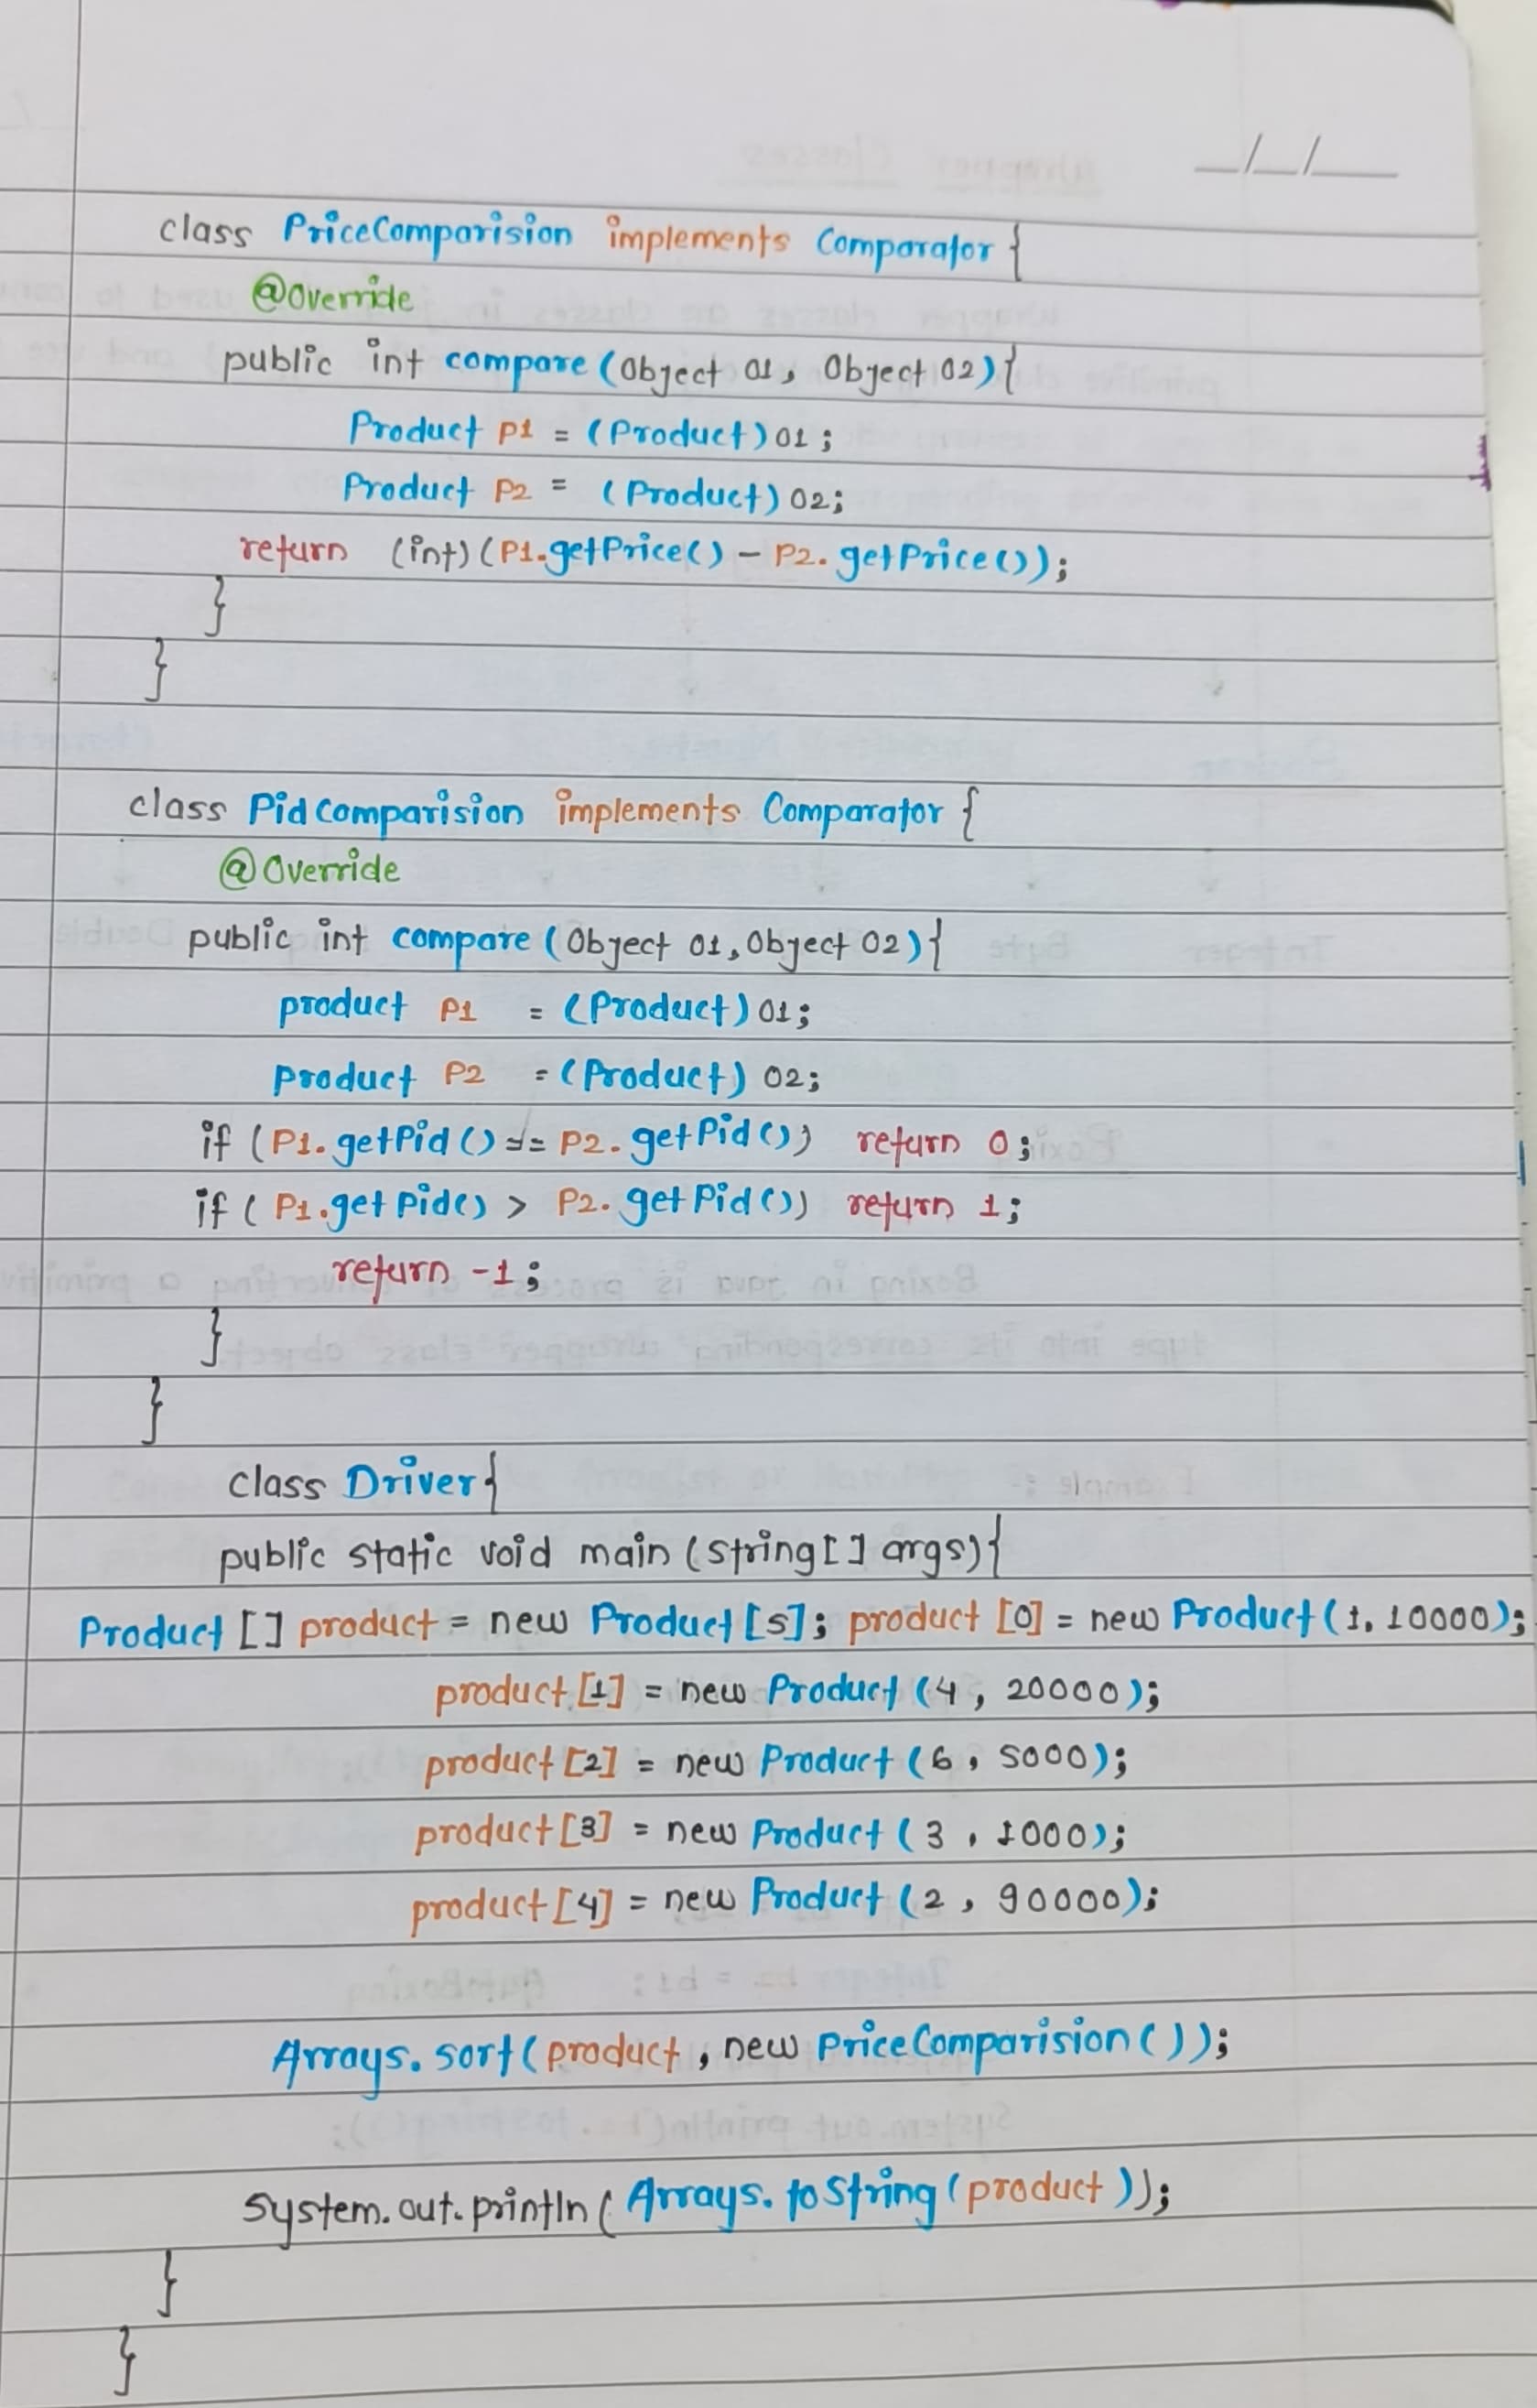 __/__/___
class PriceComparision implements Comparator {
@Override
public int compare (Object o1, Object o2) {
Product P1 = (Product) o1;
Product P2 = (Product) o2;
return (int) (P1.getPrice() - P2.getPrice());
}
}
class PidComparision implements Comparator {
@Override
public int compare (Object o1, Object o2) {
product P1 = (Product) o1;
product P2 = (Product) o2;
if (P1.getPid() == P2.getPid()) return 0;
if (P1.getPid() > P2.getPid()) return 1;
return -1;
}
}
class Driver {
public static void main (string[] args) {
Product [] product = new Product[5]; product [0] = new Product (1, 10000);
product [1] = new Product (4, 20000);
product [2] = new Product (6, 5000);
product [3] = new Product (3, 1000);
product [4] = new Product (2, 90000);
Arrays.sort (product, new PriceComparision ());
System.out.println (Arrays.toString (product));
}
}